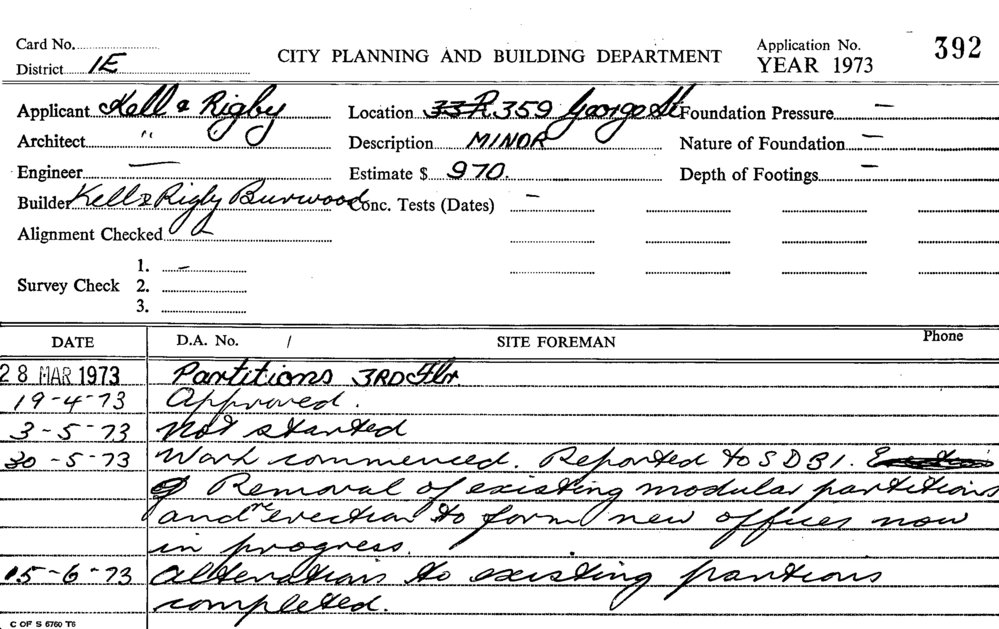 Card No.
District 1E
CITY PLANNING AND BUILDING DEPARTMENT
Application No. 392
YEAR 1973
Applicant Kell & Rigby
Location 33 R. 359 George St
Foundation Pressure —
Architect "
Description MINOR
Nature of Foundation —
Engineer —
Estimate $ 970.
Depth of Footings —
Builder Kell & Rigby Burwood
Conc. Tests (Dates) —
Alignment Checked
Survey Check
1. —
2.
3.
DATE
D.A. No. /
SITE FOREMAN
Phone
28 MAR 1973 Partitions 3RD Flr.
19-4-73 Approved.
3-5-73 Not started
30-5-73 Work commenced. Reported to SDB1.
Removal of existing modular partitions
and re erection to form new offices now
in progress.
15-6-73 Alterations to existing partions
completed.
C OF S 6760 T6